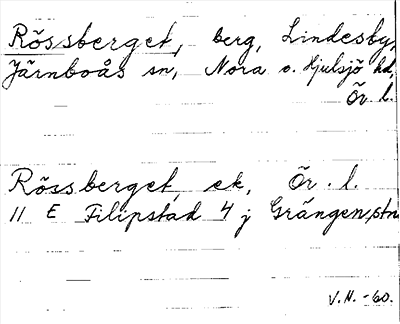 Rössberget, berg, Lindesby,
Järnboås sn, Nora o. Hjulsjö hd,
Ör l.
Rössberget, ek, Ör. l.
11 E Filipstad 4 j Grängen, stn
V.N. -60.